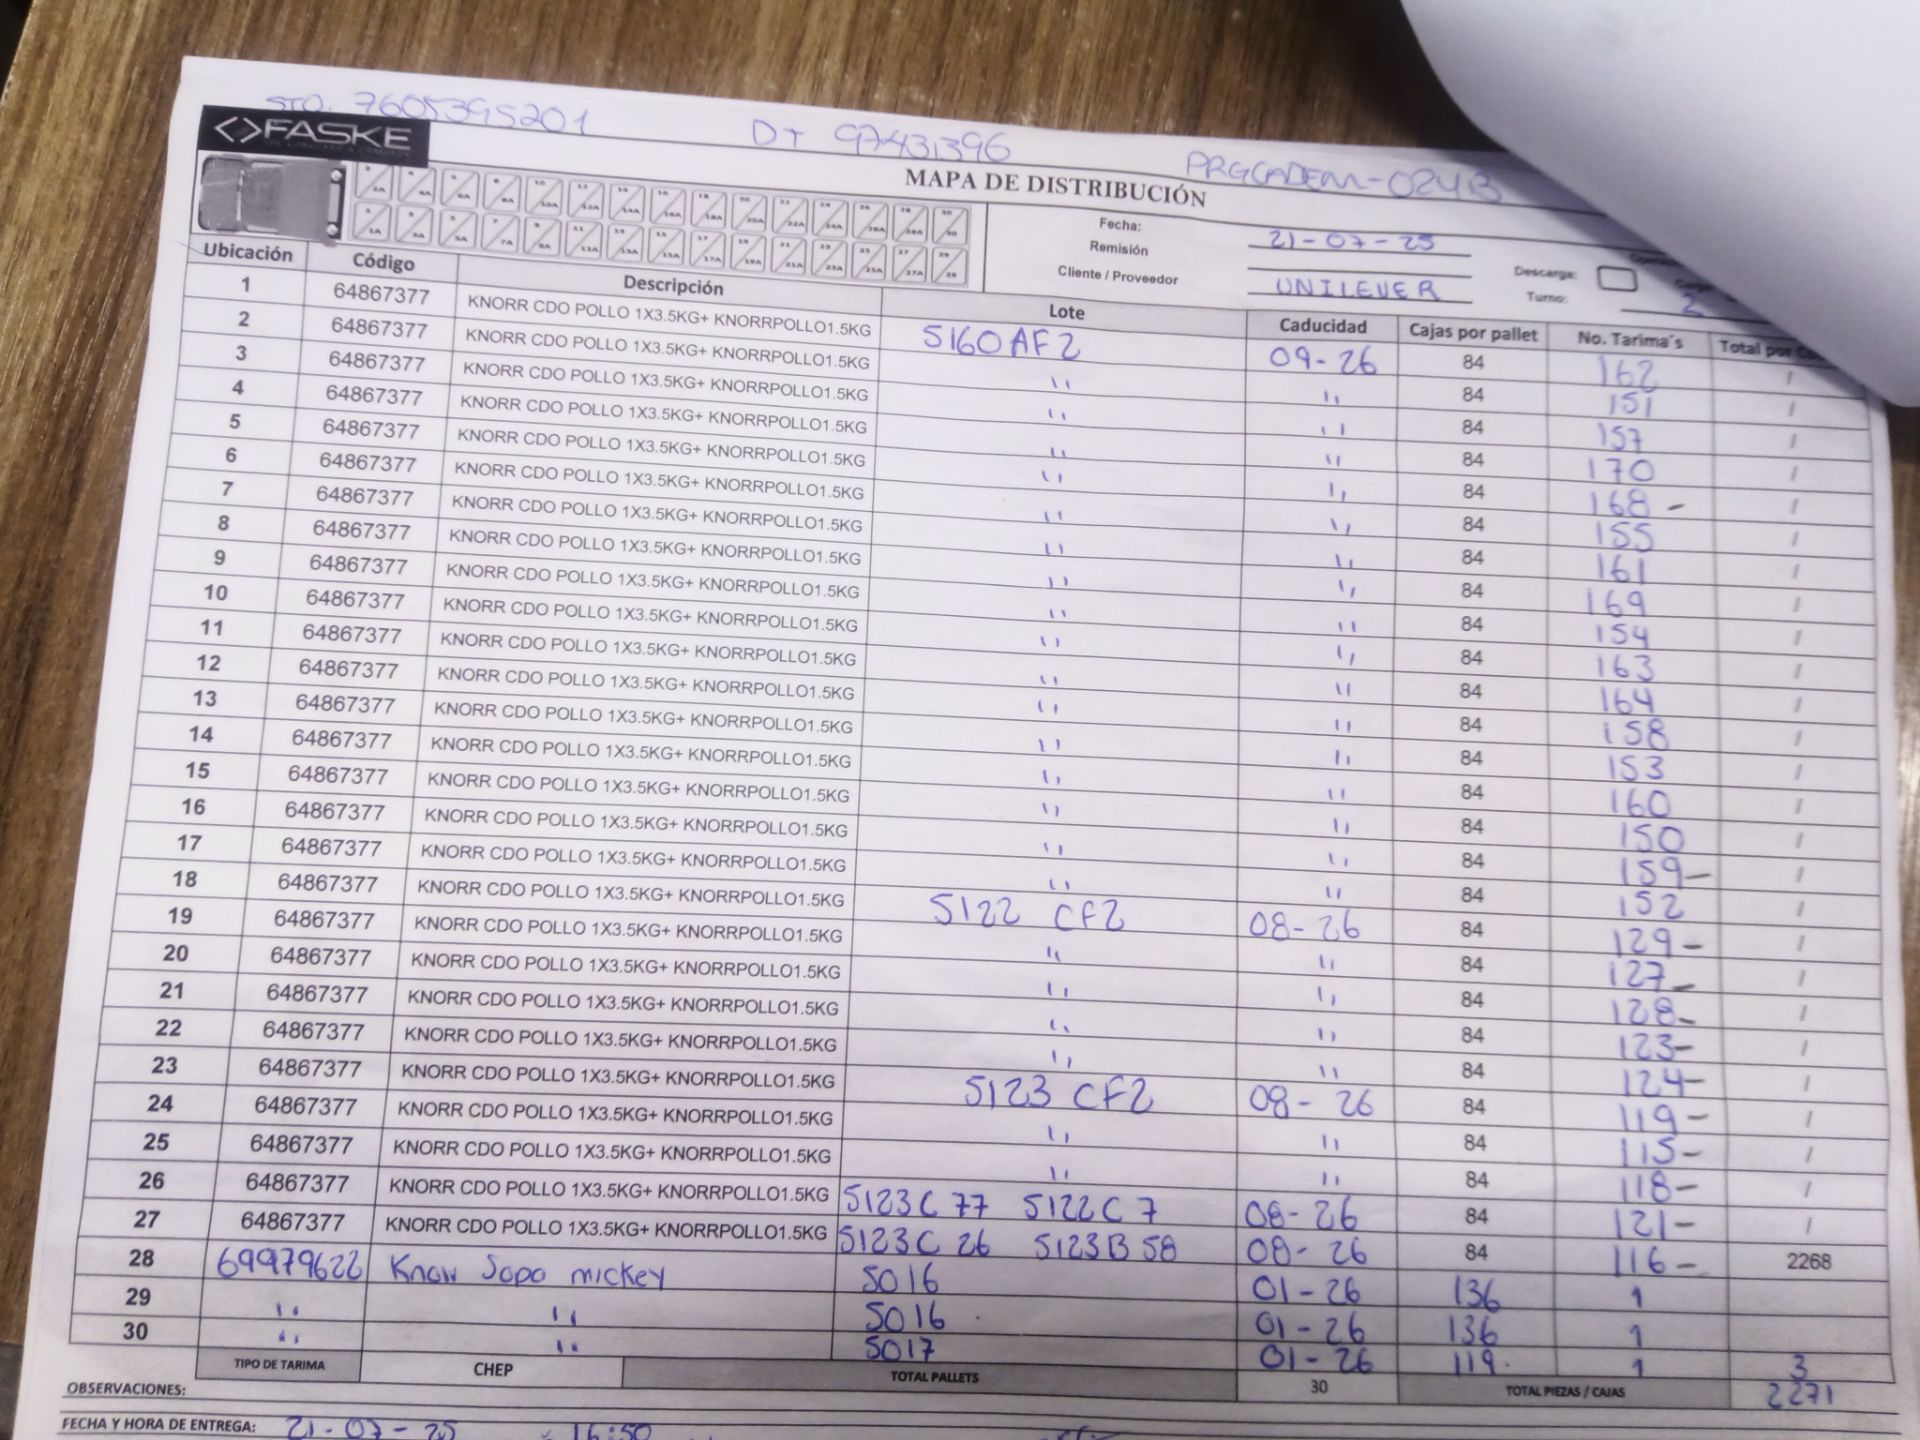 STO. 7605395201 DT 97431396 PRGCADEM-024B
<>FASKE
MAPA DE DISTRIBUCIÓN
Fecha: 21-07-25
Remisión
Cliente / Proveedor UNILEVER
Descarga:
Turno: 2
Ubicación Código Descripción Lote Caducidad Cajas por pallet No. Tarima´s Total por
1 64867377 KNORR CDO POLLO 1X3.5KG+ KNORRPOLLO1.5KG 5160AF2 09-26 84 162 /
2 64867377 KNORR CDO POLLO 1X3.5KG+ KNORRPOLLO1.5KG ,, ,, 84 151 /
3 64867377 KNORR CDO POLLO 1X3.5KG+ KNORRPOLLO1.5KG ,, ,, 84 157 /
4 64867377 KNORR CDO POLLO 1X3.5KG+ KNORRPOLLO1.5KG ,, ,, 84 170 /
5 64867377 KNORR CDO POLLO 1X3.5KG+ KNORRPOLLO1.5KG ,, ,, 84 168 - /
6 64867377 KNORR CDO POLLO 1X3.5KG+ KNORRPOLLO1.5KG ,, ,, 84 155 /
7 64867377 KNORR CDO POLLO 1X3.5KG+ KNORRPOLLO1.5KG ,, ,, 84 161 /
8 64867377 KNORR CDO POLLO 1X3.5KG+ KNORRPOLLO1.5KG ,, ,, 84 169 /
9 64867377 KNORR CDO POLLO 1X3.5KG+ KNORRPOLLO1.5KG ,, ,, 84 154 /
10 64867377 KNORR CDO POLLO 1X3.5KG+ KNORRPOLLO1.5KG ,, ,, 84 163 /
11 64867377 KNORR CDO POLLO 1X3.5KG+ KNORRPOLLO1.5KG ,, ,, 84 164 /
12 64867377 KNORR CDO POLLO 1X3.5KG+ KNORRPOLLO1.5KG ,, ,, 84 158 /
13 64867377 KNORR CDO POLLO 1X3.5KG+ KNORRPOLLO1.5KG ,, ,, 84 153 /
14 64867377 KNORR CDO POLLO 1X3.5KG+ KNORRPOLLO1.5KG ,, ,, 84 160 /
15 64867377 KNORR CDO POLLO 1X3.5KG+ KNORRPOLLO1.5KG ,, ,, 84 150 /
16 64867377 KNORR CDO POLLO 1X3.5KG+ KNORRPOLLO1.5KG ,, ,, 84 159- /
17 64867377 KNORR CDO POLLO 1X3.5KG+ KNORRPOLLO1.5KG ,, ,, 84 152 /
18 64867377 KNORR CDO POLLO 1X3.5KG+ KNORRPOLLO1.5KG 5122 CF2 08-26 84 129- /
19 64867377 KNORR CDO POLLO 1X3.5KG+ KNORRPOLLO1.5KG ,, ,, 84 127- /
20 64867377 KNORR CDO POLLO 1X3.5KG+ KNORRPOLLO1.5KG ,, ,, 84 128- /
21 64867377 KNORR CDO POLLO 1X3.5KG+ KNORRPOLLO1.5KG ,, ,, 84 123- /
22 64867377 KNORR CDO POLLO 1X3.5KG+ KNORRPOLLO1.5KG ,, ,, 84 124- /
23 64867377 KNORR CDO POLLO 1X3.5KG+ KNORRPOLLO1.5KG 5123 CF2 08-26 84 119- /
24 64867377 KNORR CDO POLLO 1X3.5KG+ KNORRPOLLO1.5KG ,, ,, 84 115- /
25 64867377 KNORR CDO POLLO 1X3.5KG+ KNORRPOLLO1.5KG ,, ,, 84 118- /
26 64867377 KNORR CDO POLLO 1X3.5KG+ KNORRPOLLO1.5KG 5123C 77 5122C 7 08-26 84 121- /
27 64867377 KNORR CDO POLLO 1X3.5KG+ KNORRPOLLO1.5KG 5123C 26 5123B 58 08-26 84 116- 2268
28 69979622 Knorr Sopa mickey 5016 01-26 136 1
29 ,, ,, 5016 01-26 136 1
30 ,, ,, 5017 01-26 119 1 3
TIPO DE TARIMA CHEP TOTAL PALLETS 30 TOTAL PIEZAS / CAJAS 2271
OBSERVACIONES:
FECHA Y HORA DE ENTREGA: 21-07-25 16:50